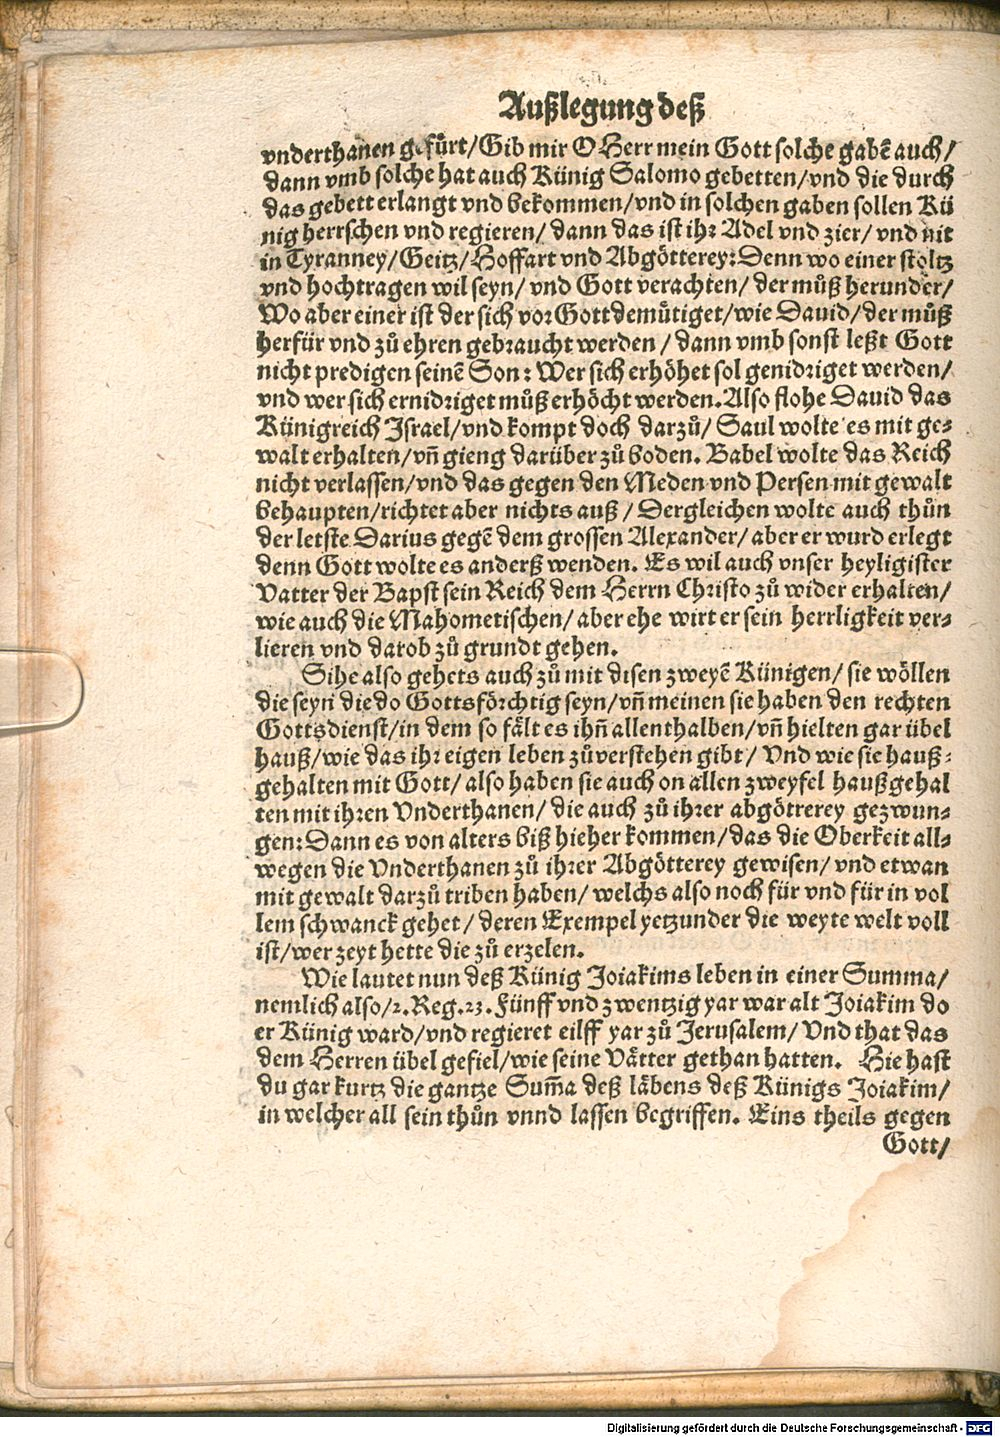 Außlegung deß
vnderthanen gefürt/Gib mir O Herr mein Gott solche gabē auch/
dann vmb solche hat auch Künig Salomo gebetten/vnd die durch
das gebett erlangt vnd bekommen/vnd in solchen gaben sollen Kü
nig herrschen vnd regieren/ dann das ist ihr Adel vnd zier/ vnd nit
in Tyranney/Geitz/Hoffart vnd Abgötterey: Denn wo einer stoltz
vnd hochtragen wil seyn/ vnd Gott verachten/ der můß herunder/
Wo aber einer ist der sich vor Gott demütiget/wie Dauid/der můß
herfür vnd zů ehren gebraucht werden / dann vmb sonst leßt Gott
nicht predigen seinē Son: Wer sich erhöhet sol genidriget werden/
vnd wer sich ernidriget můß erhöcht werden. Also flohe Dauid das
Künigreich Israel/vnd kompt doch darzů/ Saul wolte es mit ge-
walt erhalten/vñ gieng darüber zů boden. Babel wolte das Reich
nicht verlassen/vnd das gegen den Meden vnd Persen mit gewalt
behaupten/richtet aber nichts auß / Dergleichen wolte auch thůn
der letste Darius gegē dem grossen Alexander/ aber er wurd erlegt
denn Gott wolte es anderß wenden. Es wil auch vnser heyligister
Vatter der Bapst sein Reich dem Herrn Christo zů wider erhalten/
wie auch die Mahometischen/ aber ehe wirt er sein herrligkeit ver-
lieren vnd darob zů grundt gehen.
Sihe also gehets auch zů mit disen zweyē Künigen/ sie wöllen
die seyn die do Gottsförchtig seyn/ vñ meinen sie haben den rechten
Gottsdienst/in dem so fält es ihñ allenthalben/ vñ hielten gar übel
hauß/wie das ihr eigen leben zůverstehen gibt/ Vnd wie sie hauß-
gehalten mit Gott/ also haben sie auch on allen zweyfel haußgehal
ten mit ihren Vnderthanen/ die auch zů ihrer abgötrerey gezwun-
gen: Dann es von alters biß hieher kommen/das die Oberkeit all-
wegen die Vnderthanen zů ihrer Abgötterey gewisen/ vnd etwan
mit gewalt darzů triben haben/ welchs also noch für vnd für in vol
lem schwanck gehet/ deren Exempel yetzunder die weyte welt voll
ist/wer zeyt hette die zů erzelen.
Wie lautet nun deß Künig Joiakims leben in einer Summa/
nemlich also/2.Reg.23. Fünff vnd zwentzig yar war alt Joiakim do
er Künig ward/vnd regieret eilff yar zů Jerusalem/ Vnd that das
dem Herren übel gefiel/wie seine Vätter gethan hatten. Hie hast
du gar kurtz die gantze Sum̄a deß läbens deß Künigs Joiakim/
in welcher all sein thůn vnnd lassen begriffen. Eins theils gegen
Gott/
Digitalisierung gefördert durch die Deutsche Forschungsgemeinschaft - DFG